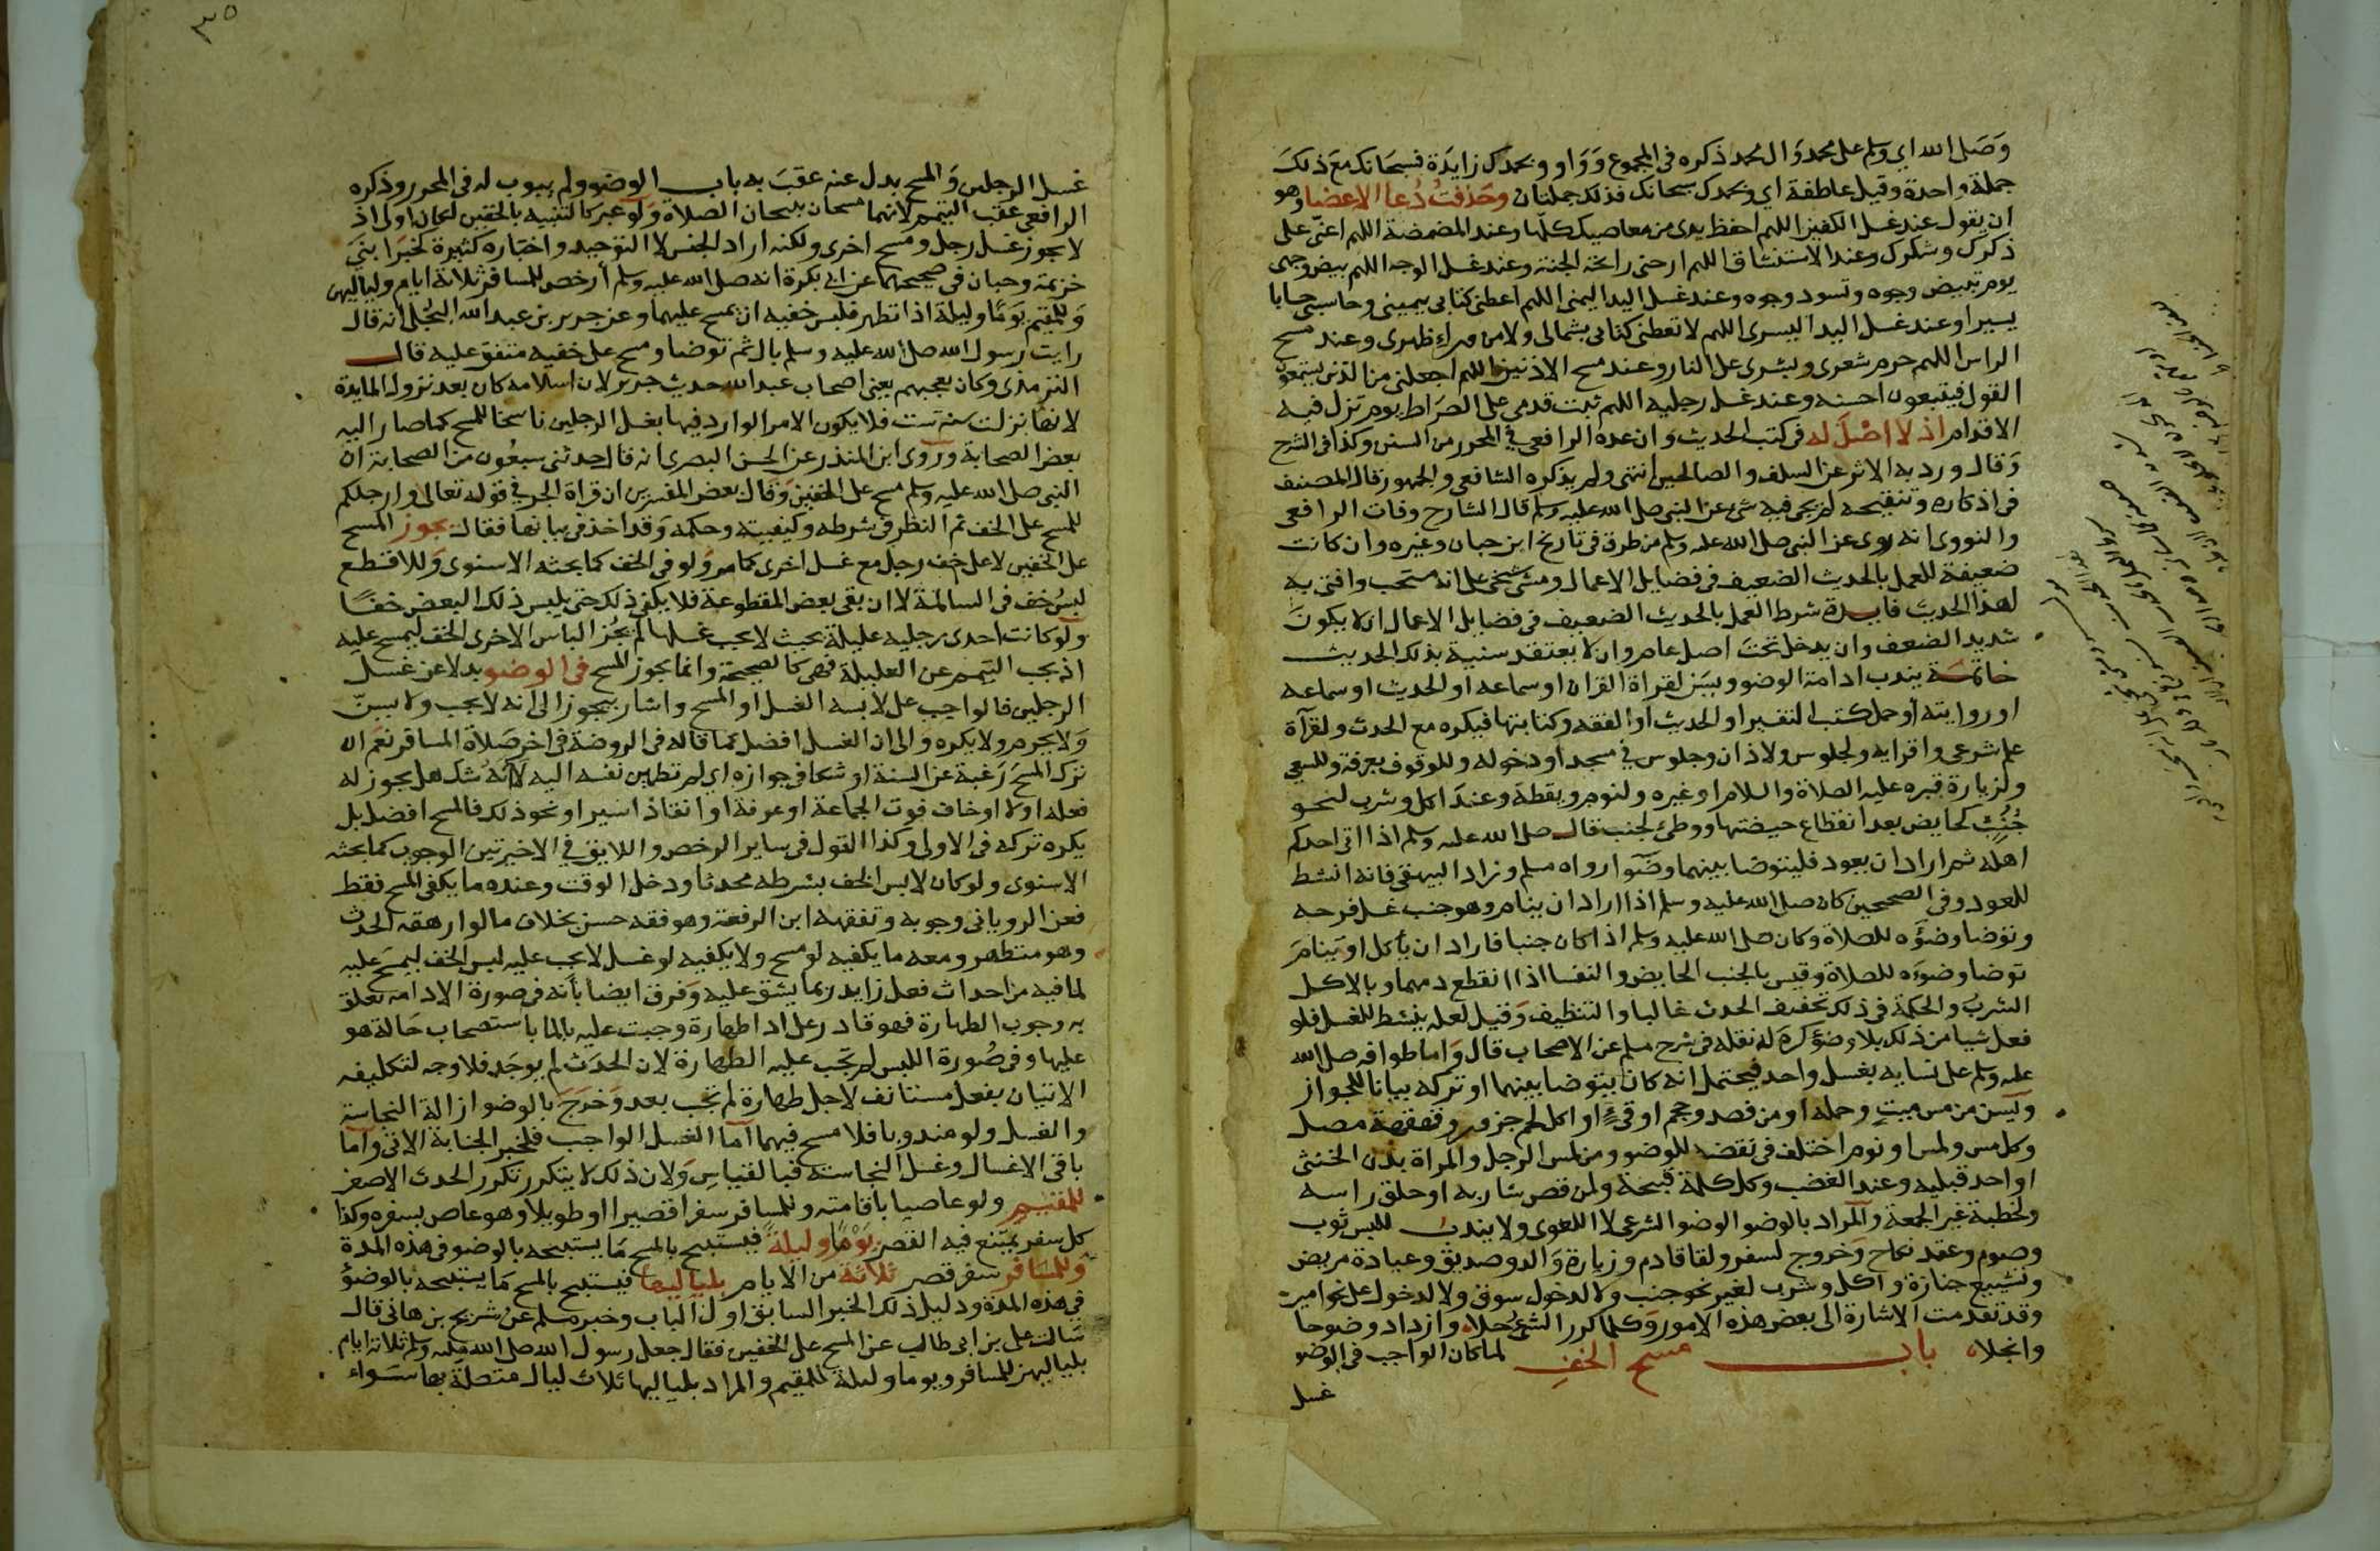 وَصَلى الله اي وسلم على محمد وَال محمد ذكره في المجموع وَوَاو وبحمدك زايدة فسبحانك مع ذلك
جملة واحدة وقيل عاطفة اي وبحمدك سبحانك فذلك جملتان وحَذفتُ دُعا الاعضا وهو
ان يقول عند غسل الكفين اللهم احفظ يدى من معاصيك كلها وعند المضمضة اللهم اعنّى على
ذكرك وشكرك وعند الاستنشاق اللهم ارحنى رائحة الجنة وعند غسل الوجه اللهم بيض وجهى
يوم تبيض وجوه وتسود وجوه وعند غسل اليد اليمنى اللهم اعطنى كتابى بيمينى وحاسبنى حسابا
يسيرا وعند غسل اليد اليسرى اللهم لا تعطنى كتابى بشمالى ولا من وراء ظهرى وعند مسح
الراس اللهم حرم شعرى وبشرى على النار وعند مسح الاذنين اللهم اجعلنى من الذين يستمعون
القول فيتبعون احسنه وعند غسل رجليه اللهم ثبت قدمى على الصراط يوم تزل فيه
الاقدام اذ لا اصْلَ له فى كتب الحديث وان عده الرافعى في المحرر من السنن وكذا فى الشرح
وَقال ورد به الاثر عن السلف والصالحين انتهى ولم يذكره الشافعى والجمهور قال المصنف
فى اذكاره وتنقيحه لم يجى فيه شى عن النبى صلى الله عليه وسلم قال الشارح وفات الرافعى
والنووى انه روى عن النبى صلى الله عليه وسلم من طرق فى تاريخ ابن حبان وغيره وان كانت
ضعيفة للعمل بالحديث الضعيف فى فضايل الاعمال ومشى شيخى على انه مستحب وافتى به
لهذا الحديث فايدة شرط العمل بالحديث الضعيف فى فضايل الاعمال ان لا يكون
شديد الضعف وان يدخل تحت اصل عام وان لا يعتقد سنية بذلك الحديث
خاتمة يندب ادامة الوضو ويسن لقراة القران او سماعه او الحديث او سماعه
او روايته او حمل كتب التفسير او الحديث او الفقه وكتابتها فيكره مع الحدث ولقرآة
علم شرعى واقرايه ولجلوس ولاذان وجلوس في مسجد او دخوله وللوقوف بعرفة وللسعى
ولزيارة قبره عليه الصلاة والسلام او غيره ولنوم ويقظة وعند اكل وشرب لنحو
جُنُبٍ كحايض بعد انقطاع حيضتها ووطئ لجنب قال صلى الله عليه وسلم اذا اتى احدكم
اهله ثم اراد ان يعود فليتوضا بينهما وضُوا رواه مسلم وزاد البيهقى فانه انشط
للعود وفى الصحيحين كان صلى الله عليه وسلم اذا اراد ان ينام وهو جنب غسل فرجه
وتوضا وضؤه للصلاة وكان صلى الله عليه وسلم اذا كان جنبا فاراد ان ياكل او ينامَ
توضا وضوءه للصلاة وقيس بالجنب الحايض والنفسا اذا انقطع دمهما وبالاكل
الشرب والحكمة فى ذلك تخفيف الحدث غالبا والتنظيف وَقيل لعله ينشط للغسل فلو
فعل شيا من ذلك بلا وضؤ كره له نقله فى شرح مسلم عن الاصحاب قال وَاما طوافه صلى الله
عليه وسلم على نسايه بغسل واحد فيحتمل انه كان يتوضا بينهما او تركه بيانا للجواز
وَيسن من مس ميتٍ وحمله او من فصد وحجم او قئ او اكل لحم جزور وقهقهة مصل
وكل مس ولمس او نوم اختلف فى نقضه للوضو ومن لمس الرجل والمراة بدن الخنثى
او احد قبليه وعند الغضب وكل كلمة قبيحة ولمن قص شاربه او حلق راسه
ولخطبة غير الجمعة والمراد بالوضو الوضو الشرعى لا اللغوى ولا يندب للبس ثوب
وصوم وعقد نكاح وَخروج لسفر ولقا قادم وزيارة وَالد وصديق وعيادة مريض
وتشييع جنازة واكل وشرب لغير نحو جنب ولا لدخول سوق ولا لدخول على نحو امير
وقد تقدمت الاشارة الى بعض هذه الامور وَكلما كرر الشئ حلا وازداد وضوحا
وانجلا باب مسح الخفِ لما كان الواجب فى الوضو
غسل
٣٥
غسل الرجلين وَالمسح بدل عنه عقبَ به باب الوضو ولم يبوب له فى المحرر وذكره
الرافعى عقب التيمم لانهما مسحان يبيحان الصلاة وَلو عبر كالتنبيه بالخفين لكان اولى اذ
لا يجوز غسل رجل ومسح اخرى ولكنه اراد الجنس لا التوحيد واخباره كثيرة كخبر ابنَى
خزيمة وحبان فى صحيحهما عن ابى بكرة انه صلى الله عليه وسلم أرخص للمسافر ثلاثة ايام ولياليهن
وَللمقيم يومًا وليلة اذا تطهر فلبس خفيه ان يمسح عليهما وعن جرير بن عبد الله البجلى انه قال
رايت رسول الله صلى الله عليه وسلم بال ثم توضا ومسح على خفيه متفق عليه قال
الترمذى وكان يعجبهم يعنى اصحاب عبد الله حديث جرير لان اسلامه كان بعد نزول المايدة
لانها نزلت سنة ست فلا يكون الامر الوارد فيها بغسل الرجلين ناسخا للمسح كما صار اليه
بعض الصحابة وروى ابن المنذر عن الحسن البصرى انه قال حدثنى سبعُون من الصحابة ان
النبى صلى الله عليه وسلم مسح على الخفين وَقال بعض المفسرين ان قراة الجر في قوله تعالى وارجلكم
للمسح على الخف ثم النظر فى شرطه وكيفيته وحكمه وَقد اخذ فى بيانها فقال يجوز المسح
على الخفين لا على خف رجل مع غسل اخرى كما مر وَلو فى الخف كما بحثه الاسنوى وَللاقطع
لبسُ خف فى السالمة لا ان بقى بعض المقطوعة فلا يكفى ذلك حتى يلبس ذلك البعض خفًا
ولو كانت احدى رجليه عليلة بحيث لا يجب غسلها لم يجُز الباس الاخرى الخف ليمسح عليه
اذ يجب التيمم عن العليلة فهى كالصحيحة وانما يجوز المسح فى الوضو بدلا عن غسل
الرجلين فالواجب على لابسه الغسل او المسح واشار بيجوز الى انه لا يجب ولا يسنّ
وَلا يحرم ولا يكره وَالى ان الغسل افضل كما قاله فى الروضة فى اخر صَلاة المسافر نعَم ان
ترك المسح رَغبة عن السنة او شكا فى جوازه اى لم تطمئن نفسه اليه لا انه شك هل يجوز له
فعله او لا او خاف فوت الجماعة او عرفة او انقاذ اسير او نحو ذلك فالمسح افضل بل
يكره تركه فى الاولى وكذا القول فى ساير الرخص واللايق في الاخيرتين الوجوب كما بحثه
الاسنوى ولو كان لابس الخف بشرطه محدثا ودخل الوقت وعنده ما يكفى المسح فقط
فعن الرويانى وجوبه وتفقهه ابن الرفعة وهو فقه حسن بخلاف ما لو ارهقه الحدث
وهو متطهر ومعه ما يكفيه لو مسح ولا يكفيه لو غسل لا يجب عليه لبس الخف ليمسَح عليه
لما فيه من احداث فعل زايد ربما يشق عليه وَفرق ايضا بأنه فى صورة الادامة تعلق
به وجوب الطهارة فهو قادر على اداء طهارة وجبت عليه بالما باستصحاب حَالة هو
عليها وفى صُورة اللبس لم تجب عليه الطهارة لان الحدَث لم يوجَد فلا وجه لتكليفه
الاتيان بفعل مستانف لاجل طهارة لم تجب بعد وَخرَجَ بالوضو ازالة النجاسة
والغسل ولو مندوبا فلا مسح فيهما امَّا الغسل الواجب فلخبر الجنابة الاتى وَأما
باقى الاغسال وغسل النجاسة فبالقياسِ وَلان ذلك لا يتكرر تكرر الحدث الاصغر
للمقيم ولو عاصيا باقامته وللمسافر سفرا قصيرا او طويلا وهو عاص بسفره وكذا
كل سفر يمتنع فيه القصر يَوْمًا وليلةً فيستبيح بالمسح مَا يستبيحه بالوضو فى هذه المدة
وَللمسَافر سفر قصر ثلاثة من الايام بلياليها فيستبيح بالمسح مَا يستبيحه بالوضوُ
فى هذه المدة ودليل ذلك الخبر السابق اول الباب وخبر مسلم عن شريح بن هانى قال
سَالت على بن ابى طالب عن المسح على الخفين فقال جعل رسول الله صلى الله عليه وسلم ثلاثة ايام
بلياليهن للمسافر ويوما وليلة للمقيم والمراد بلياليها ثلاث ليال متصلة بها سَواء